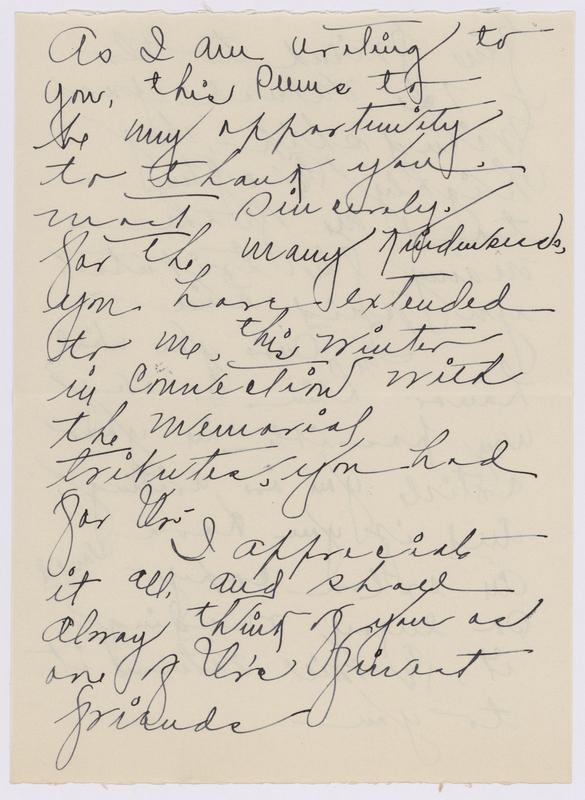 As I am writing to
you, this seems to
be my opportunity
to thank you.
most sincerely.
for the many kindnesses,
you have extended
to me, this winter
in connection with
the memorial
tributes, you had
for
I appreciate
it all, and shall
alway think of you as
one of finest
friends